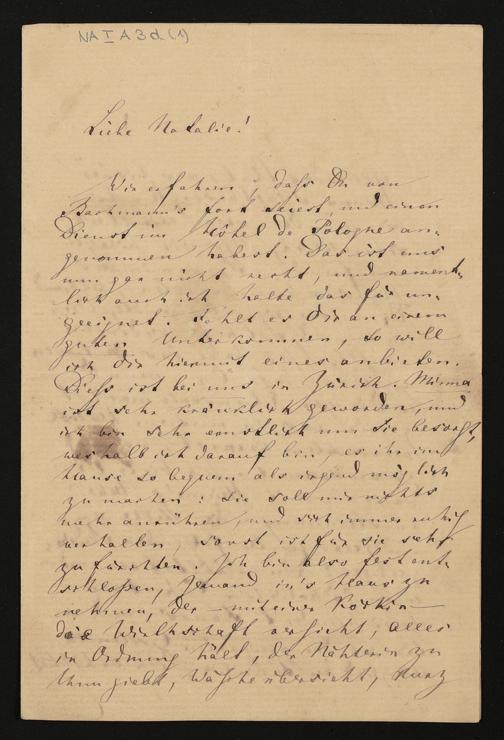 NA I A 3 d (1)
Liebe Natalie!
Wir erfahren, dass Du von
Bachmann's fort seiest, und einen
Dienst im Hôtel de Pologne an-
genommen habest. Das ist uns
nun gar nicht recht, und nament-
lich auch ich halte das für un-
geeignet. Fehlt es Dir an einem
guten Unterkommen, so will
ich Dir hiermit eines anbieten.
Diess ist bei uns in Zürich. Minna
ist sehr kränklich geworden, und
ich bin sehr ernstlich um sie besorgt,
weshalb ich darauf bin, es ihr im
Hause so bequem als irgend möglich
zu machen: sie soll mir nichts
mehr anrühren, und sich immer ruhig
verhalten, sonst ist für sie sehr
zu fürchten. Ich bin also fest ent-
schlossen, Jemand in's Haus zu
nehmen, der – mit einer Köchin –
die Wirthschaft versieht, alles
in Ordnung hält, der Nähterin zu
thun giebt, Wäsche übersieht, kurz